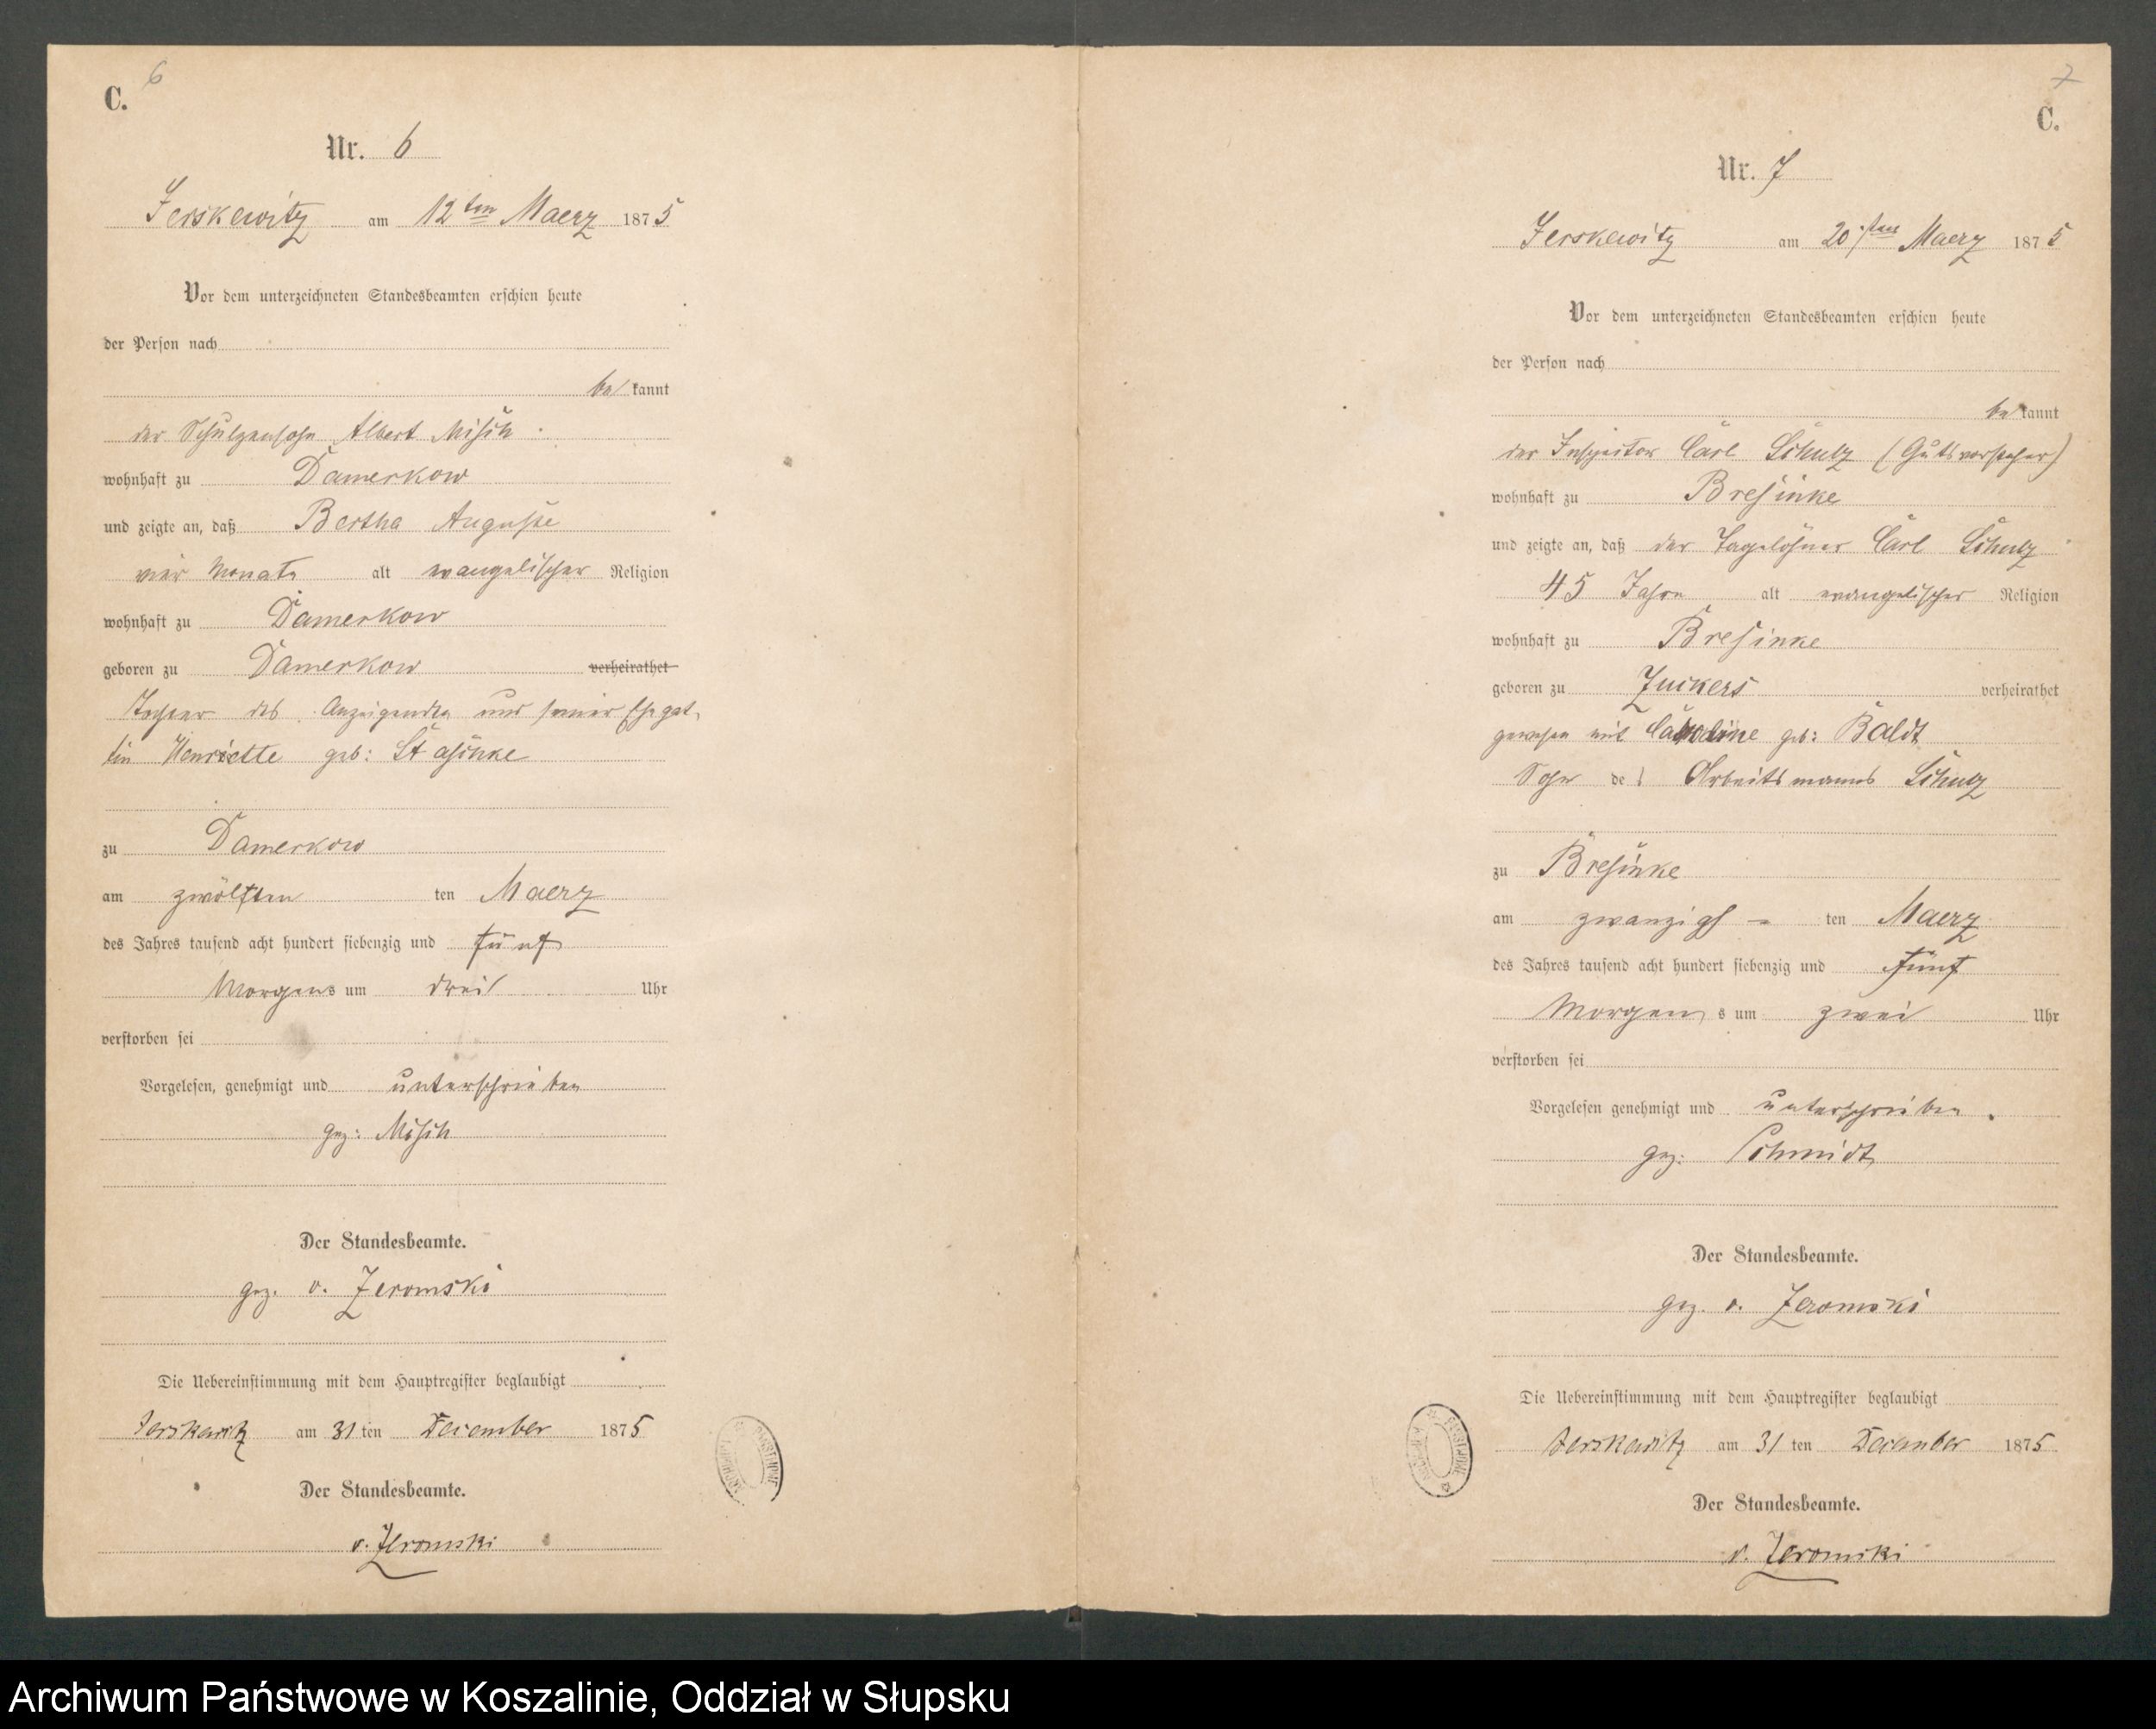 6
C.
Nr. 6
Jerskewitz am 12ten Maerz 1875
Vor dem unterzeichneten Standesbeamten erschien heute
der Person nach
be kannt
der Schulzensohn Albert Misch
wohnhaft zu Damerkow
und zeigte an, daß Bertha Auguste
vier Monate alt evangelischer Religion
wohnhaft zu Damerkow
geboren zu Damerkow verheirathet
Tochter des Anzeigenden und seiner Ehegat-
tin Henriette geb: Staschke
zu Damerkow
am zwölften ten Maerz
des Jahres tausend acht hundert siebenzig und fünf
Morgens um drei Uhr
verstorben sei
Vorgelesen, genehmigt und unterschrieben
gez: Misch
Der Standesbeamte.
gez. v. Zeromski
Die Uebereinstimmung mit dem Hauptregister beglaubigt
Jerskewitz am 31 ten December 1875
Der Standesbeamte.
v. Zeromski
7
C.
Nr. 7
Jerskewitz am 20sten Maerz 1875
Vor dem unterzeichneten Standesbeamten erschien heute
der Person nach
be kannt
der Inspector Carl Schulz (Gutsvorsteher)
wohnhaft zu Bresinke
und zeigte an, daß der Tagelöhner Carl Schulz
45 Jahre alt evangelischer Religion
wohnhaft zu Bresinke
geboren zu Zuckers verheirathet
gewesen mit Caroline geb: Baldt
Sohn des Arbeitsmanns Schulz
zu Bresinke
am zwanzigs- ten Maerz
des Jahres tausend acht hundert siebenzig und fünf
Morgen s um zwei Uhr
verstorben sei
Vorgelesen genehmigt und unterschrieben.
gez: Schmidt
Der Standesbeamte.
gez. v. Zeromski
Die Uebereinstimmung mit dem Hauptregister beglaubigt
Jerskewitz am 31 ten December 1875
Der Standesbeamte.
v. Zeromski
Archiwum Państwowe w Koszalinie, Oddział w Słupsku